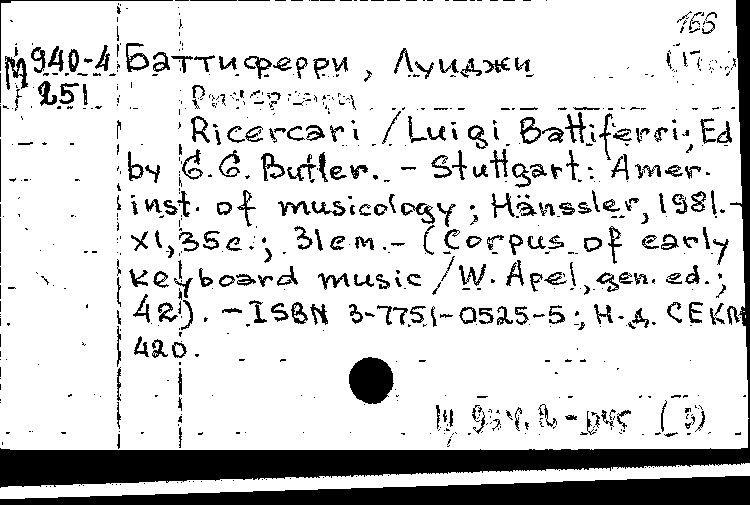 166
М 940-4 Баттиферри, Луиджи
251 Ричеркари
Ricercari / Luigi Battiferri; Ed
by G.G. Butler. - Stuttgart: Amer.
inst. of musicology; Hänssler, 1981.-
XI, 35c.; 31cm.- (Corpus of early
keyboard music / W. Apel, gen. ed.;
42). - ISBN 3-7751-0525-5; Н.д. CEKM
420.